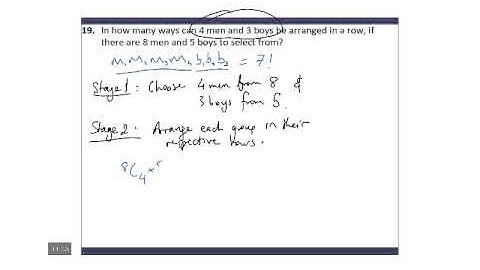 19. In how many ways can 4 men and 3 boys be arranged in a row, if
there are 8 men and 5 boys to select from?
m₁ m₂ m₃ m₄ b₁ b₂ b₃ = 7!
Stage 1 : Choose 4 men from 8 &
3 boys from 5.
Stage 2 : Arrange each group in their
respective rows.
⁸C₄ × ⁵